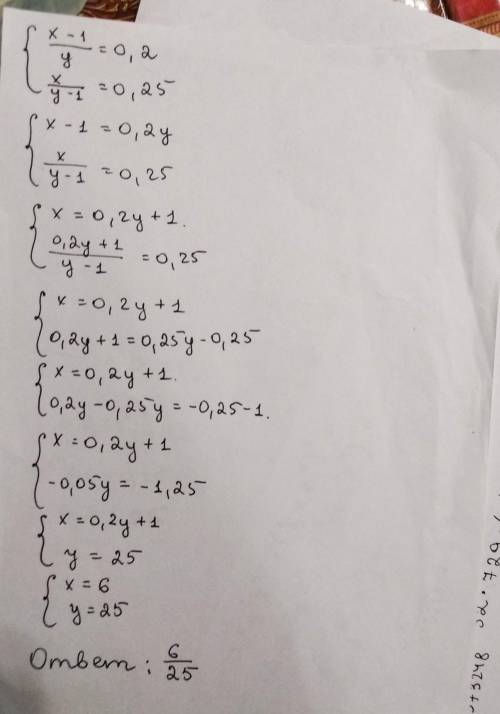 x - 1 / y = 0,2
x / y - 1 = 0,25
x - 1 = 0,2y
x / y - 1 = 0,25
x = 0,2y + 1.
0,2y + 1 / y - 1 = 0,25
x = 0,2y + 1
0,2y + 1 = 0,25y - 0,25
x = 0,2y + 1.
0,2y - 0,25y = -0,25 - 1.
x = 0,2y + 1
-0,05y = -1,25
x = 0,2y + 1
y = 25
x = 6
y = 25
Ответ: 6/25